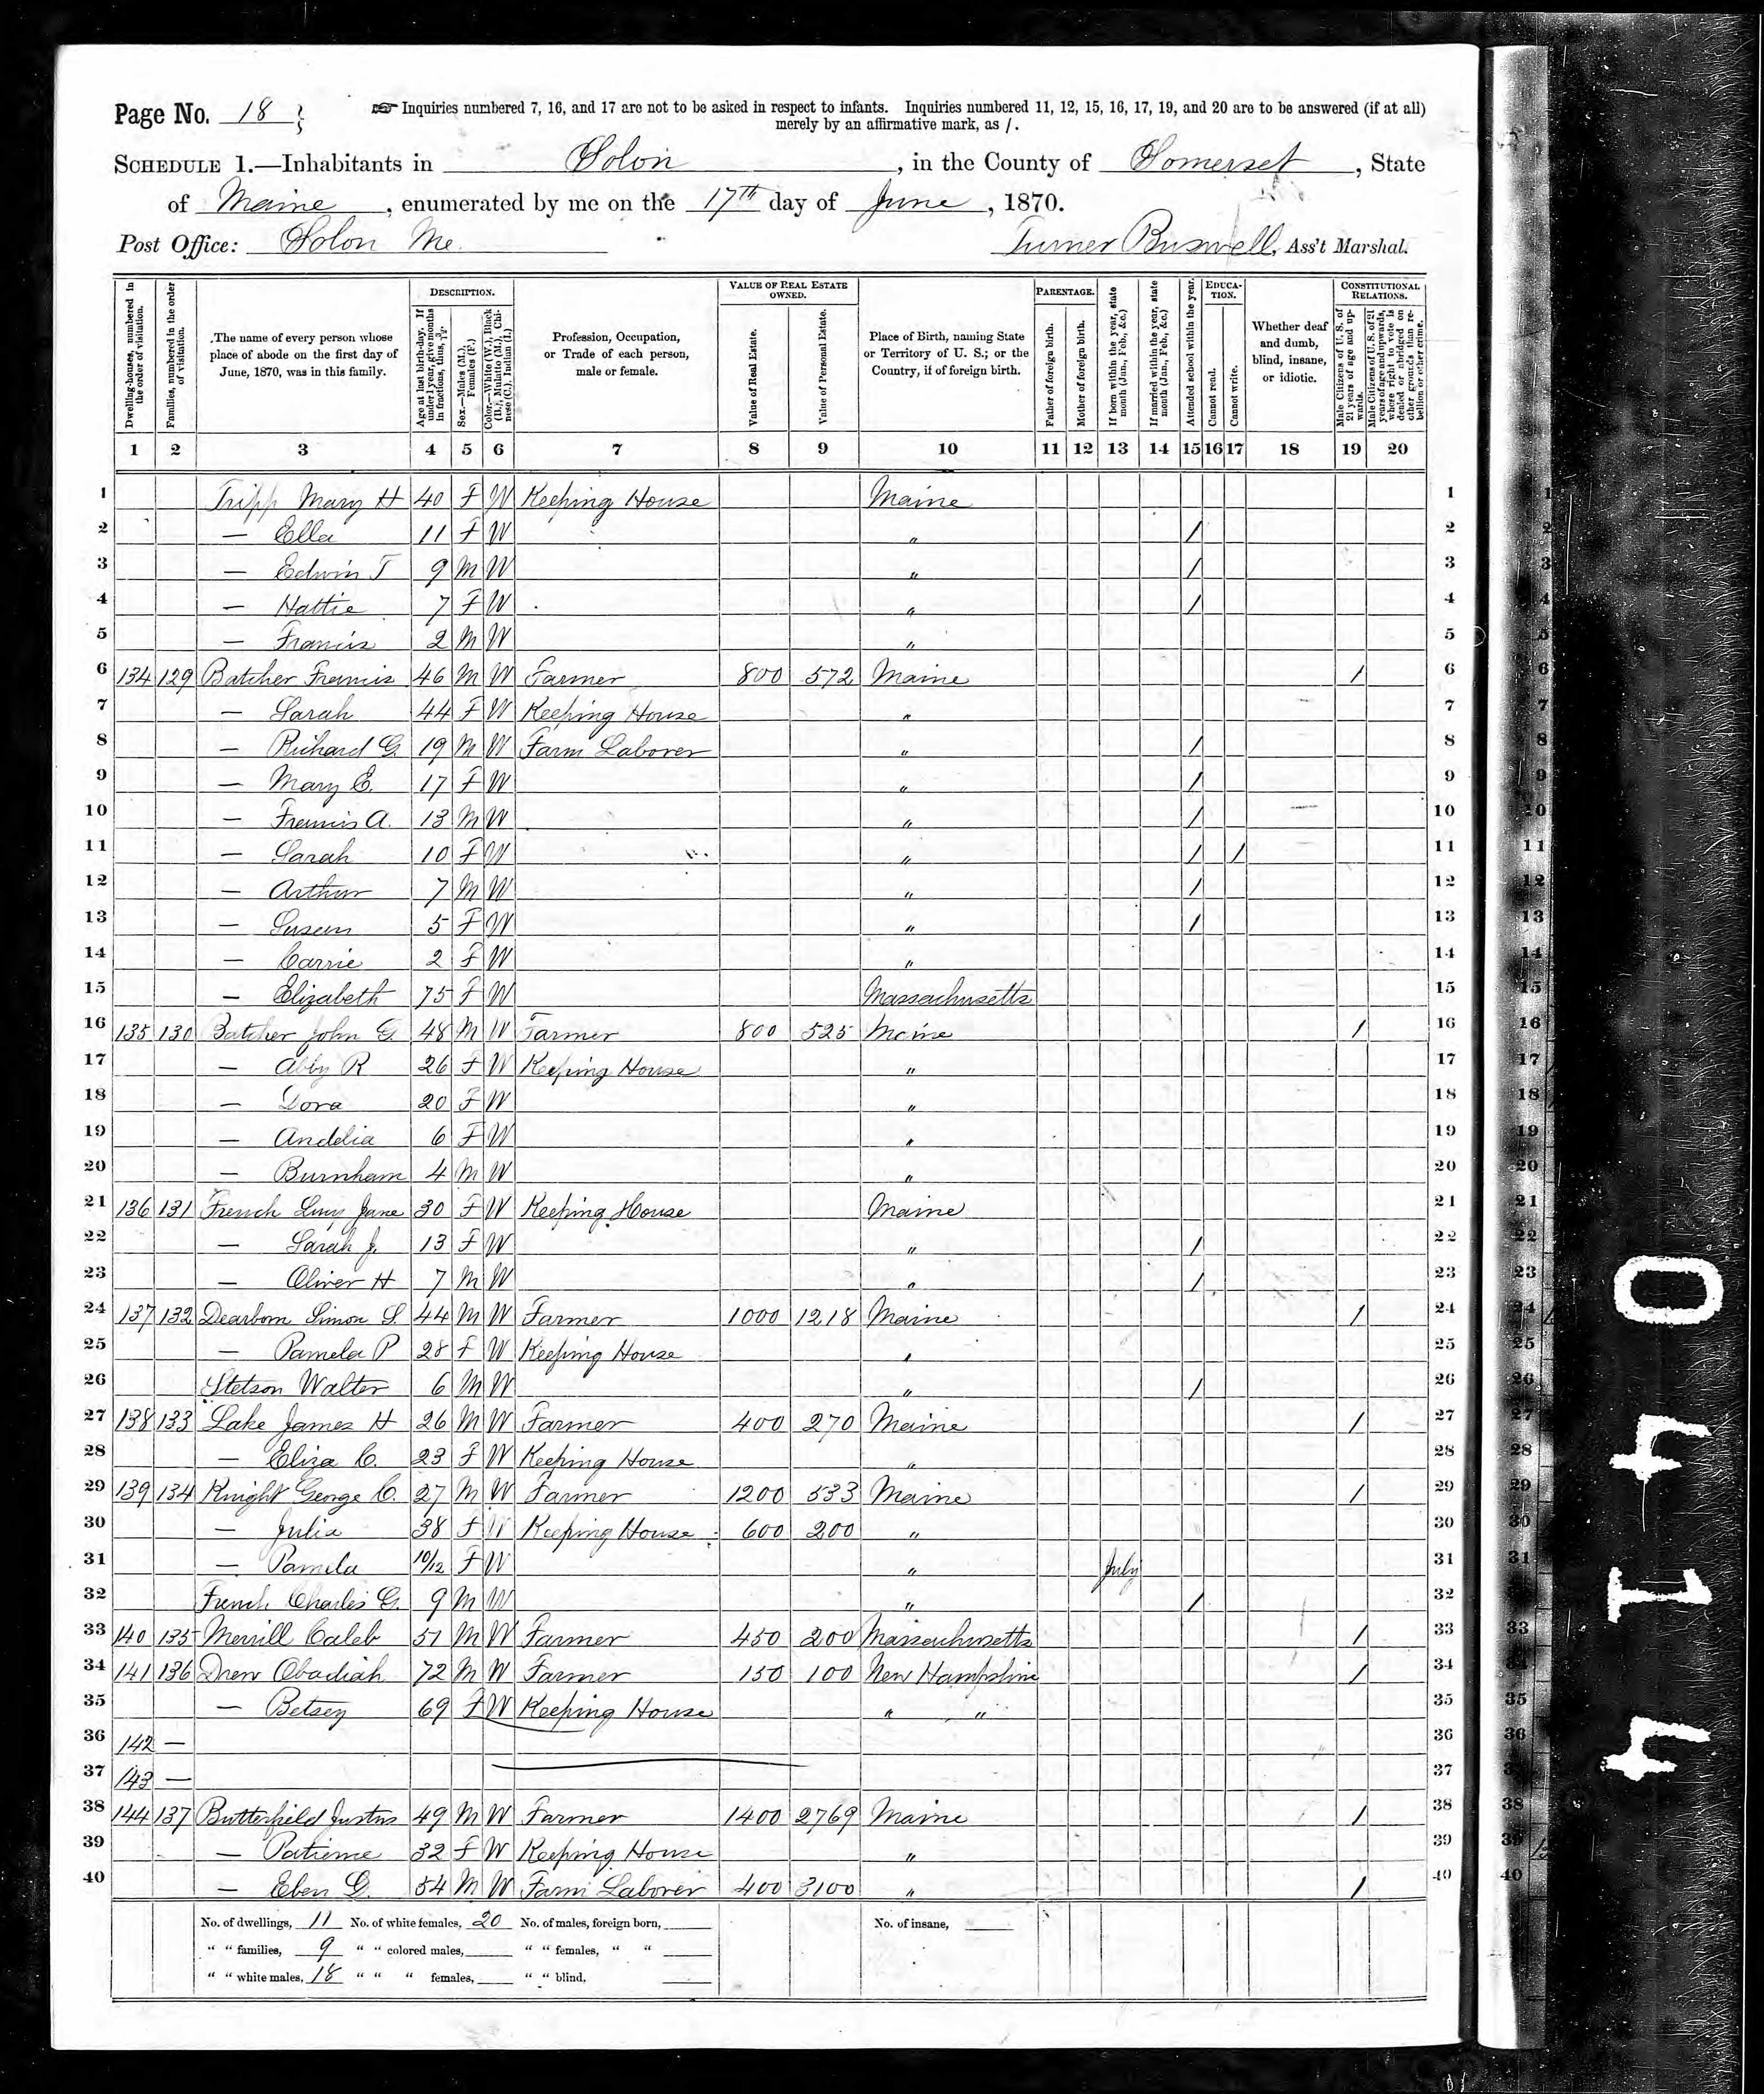 Page No. 18
Inquiries numbered 7, 16, and 17 are not to be asked in respect to infants. Inquiries numbered 11, 12, 15, 16, 17, 19, and 20 are to be answered (if at all)
merely by an affirmative mark, as /.
SCHEDULE 1.—Inhabitants in Solon, in the County of Somerset, State
of Maine, enumerated by me on the 17th day of June, 1870.
Post Office: Solon Me. Turner Buswell, Ass't Marshal.
Dwelling-houses, numbered in the order of visitation.
Families, numbered in the order of visitation.
The name of every person whose place of abode on the first day of June, 1870, was in this family.
DESCRIPTION.
Age at last birth-day. If under 1 year, give months in fractions, thus, 3/12.
Sex.—Males (M.), Females (F.)
Color.—White (W.), Black (B.), Mulatto (M.), Chinese (C.), Indian (I.)
Profession, Occupation, or Trade of each person, male or female.
VALUE OF REAL ESTATE OWNED.
Value of Real Estate.
Value of Personal Estate.
Place of Birth, naming State or Territory of U. S.; or the Country, if of foreign birth.
PARENTAGE.
Father of foreign birth.
Mother of foreign birth.
If born within the year, state month (Jan., Feb., &c.)
If married within the year, state month (Jan., Feb., &c.)
Attended school within the year.
EDUCATION.
Cannot read.
Cannot write.
Whether deaf and dumb, blind, insane, or idiotic.
CONSTITUTIONAL RELATIONS.
Male Citizens of U. S. of 21 years of age and upwards.
Male Citizens of U. S. of 21 years of age and upwards, where right to vote is denied or abridged on other grounds than rebellion or other crime.
1 2 3 4 5 6 7 8 9 10 11 12 13 14 15 16 17 18 19 20
1 Tripp Mary H 40 F W Keeping House Maine 1
2 — Ella 11 F W " / 2
3 — Edwin T 9 M W " / 3
4 — Hattie 7 F W " / 4
5 — Francis 2 M W " 5
6 134 129 Batcher Francis 46 M W Farmer 800 572 Maine / 6
7 — Sarah 44 F W Keeping House " 7
8 — Richard G. 19 M W Farm Laborer " / 8
9 — Mary E. 17 F W " / 9
10 — Francis A. 13 M W " / 10
11 — Sarah 10 F W " / / 11
12 — Arthur 7 M W " / 12
13 — Susan 5 F W " / 13
14 — Carrie 2 F W " 14
15 — Elizabeth 75 F W Massachusetts 15
16 135 130 Batcher John G. 48 M W Farmer 800 525 Maine / 16
17 — Abby R 26 F W Keeping House " 17
18 — Dora 20 F W " 18
19 — Andelia 6 F W " 19
20 — Burnham 4 M W " 20
21 136 131 French Lucy Jane 30 F W Keeping House Maine 21
22 — Sarah J. 13 F W " / 22
23 — Oliver H 7 M W " / 23
24 137 132 Dearborn Simon S. 44 M W Farmer 1000 1218 Maine / 24
25 — Pamela P 28 F W Keeping House " 25
26 Stetson Walter 6 M W " / 26
27 138 133 Lake James H 26 M W Farmer 400 270 Maine / 27
28 — Eliza C. 23 F W Keeping House " 28
29 139 134 Knight George C. 27 M W Farmer 1200 533 Maine / 29
30 — Julia 38 F W Keeping House 600 200 " 30
31 — Pamela 10/12 F W " July 31
32 French Charles G. 9 M W " / 32
33 140 135 Merrill Caleb 51 M W Farmer 450 200 Massachusetts / 33
34 141 136 Drew Obadiah 72 M W Farmer 150 100 New Hampshire / 34
35 — Betsey 69 F W Keeping House " " 35
36 142 — 36
37 143 — 37
38 144 137 Butterfield Justus 49 M W Farmer 1400 2769 Maine / 38
39 — Patience 32 F W Keeping House " 39
40 — Eben G. 54 M W Farm Laborer 400 3100 " / 40
No. of dwellings, 11 No. of white females, 20 No. of males, foreign born, No. of insane,
" " families, 9 " " colored males, " " females, " "
" " white males, 18 " " " females, " " blind,
04114